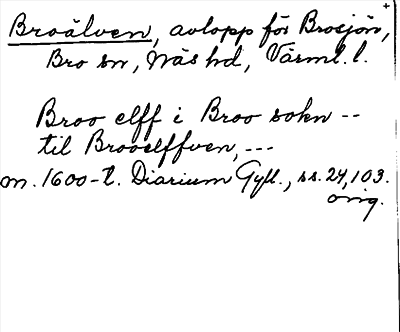 Broälven, avlopp för Brosjön,
Bro sn, Näs hd, Värml. l.
Broo elff i Broo sokn --
til Brooelffven, ---
m. 1600-t. Diarium Gyll., ss. 24, 103.
orig.